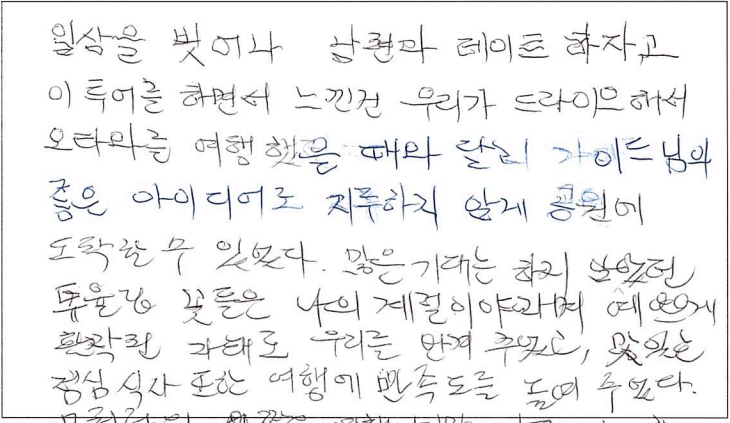 일상을 벗어나 남편과 데이트 하자고
이 투어를 하면서 느낀건 우리가 드라이브해서
오타와를 여행 했을 때와 달리 가이드님의
좋은 아이디어로 지루하지 않게 공원에
도착할 수 있었다. 많은 기대는 하지 않았던
튜율립 꽃들은 나의 계절이야라며 예쁘게
활짝핀 자태로 우리를 반겨 주었고, 맛있는
점심식사 또한 여행에 만족도를 높여 주었다.